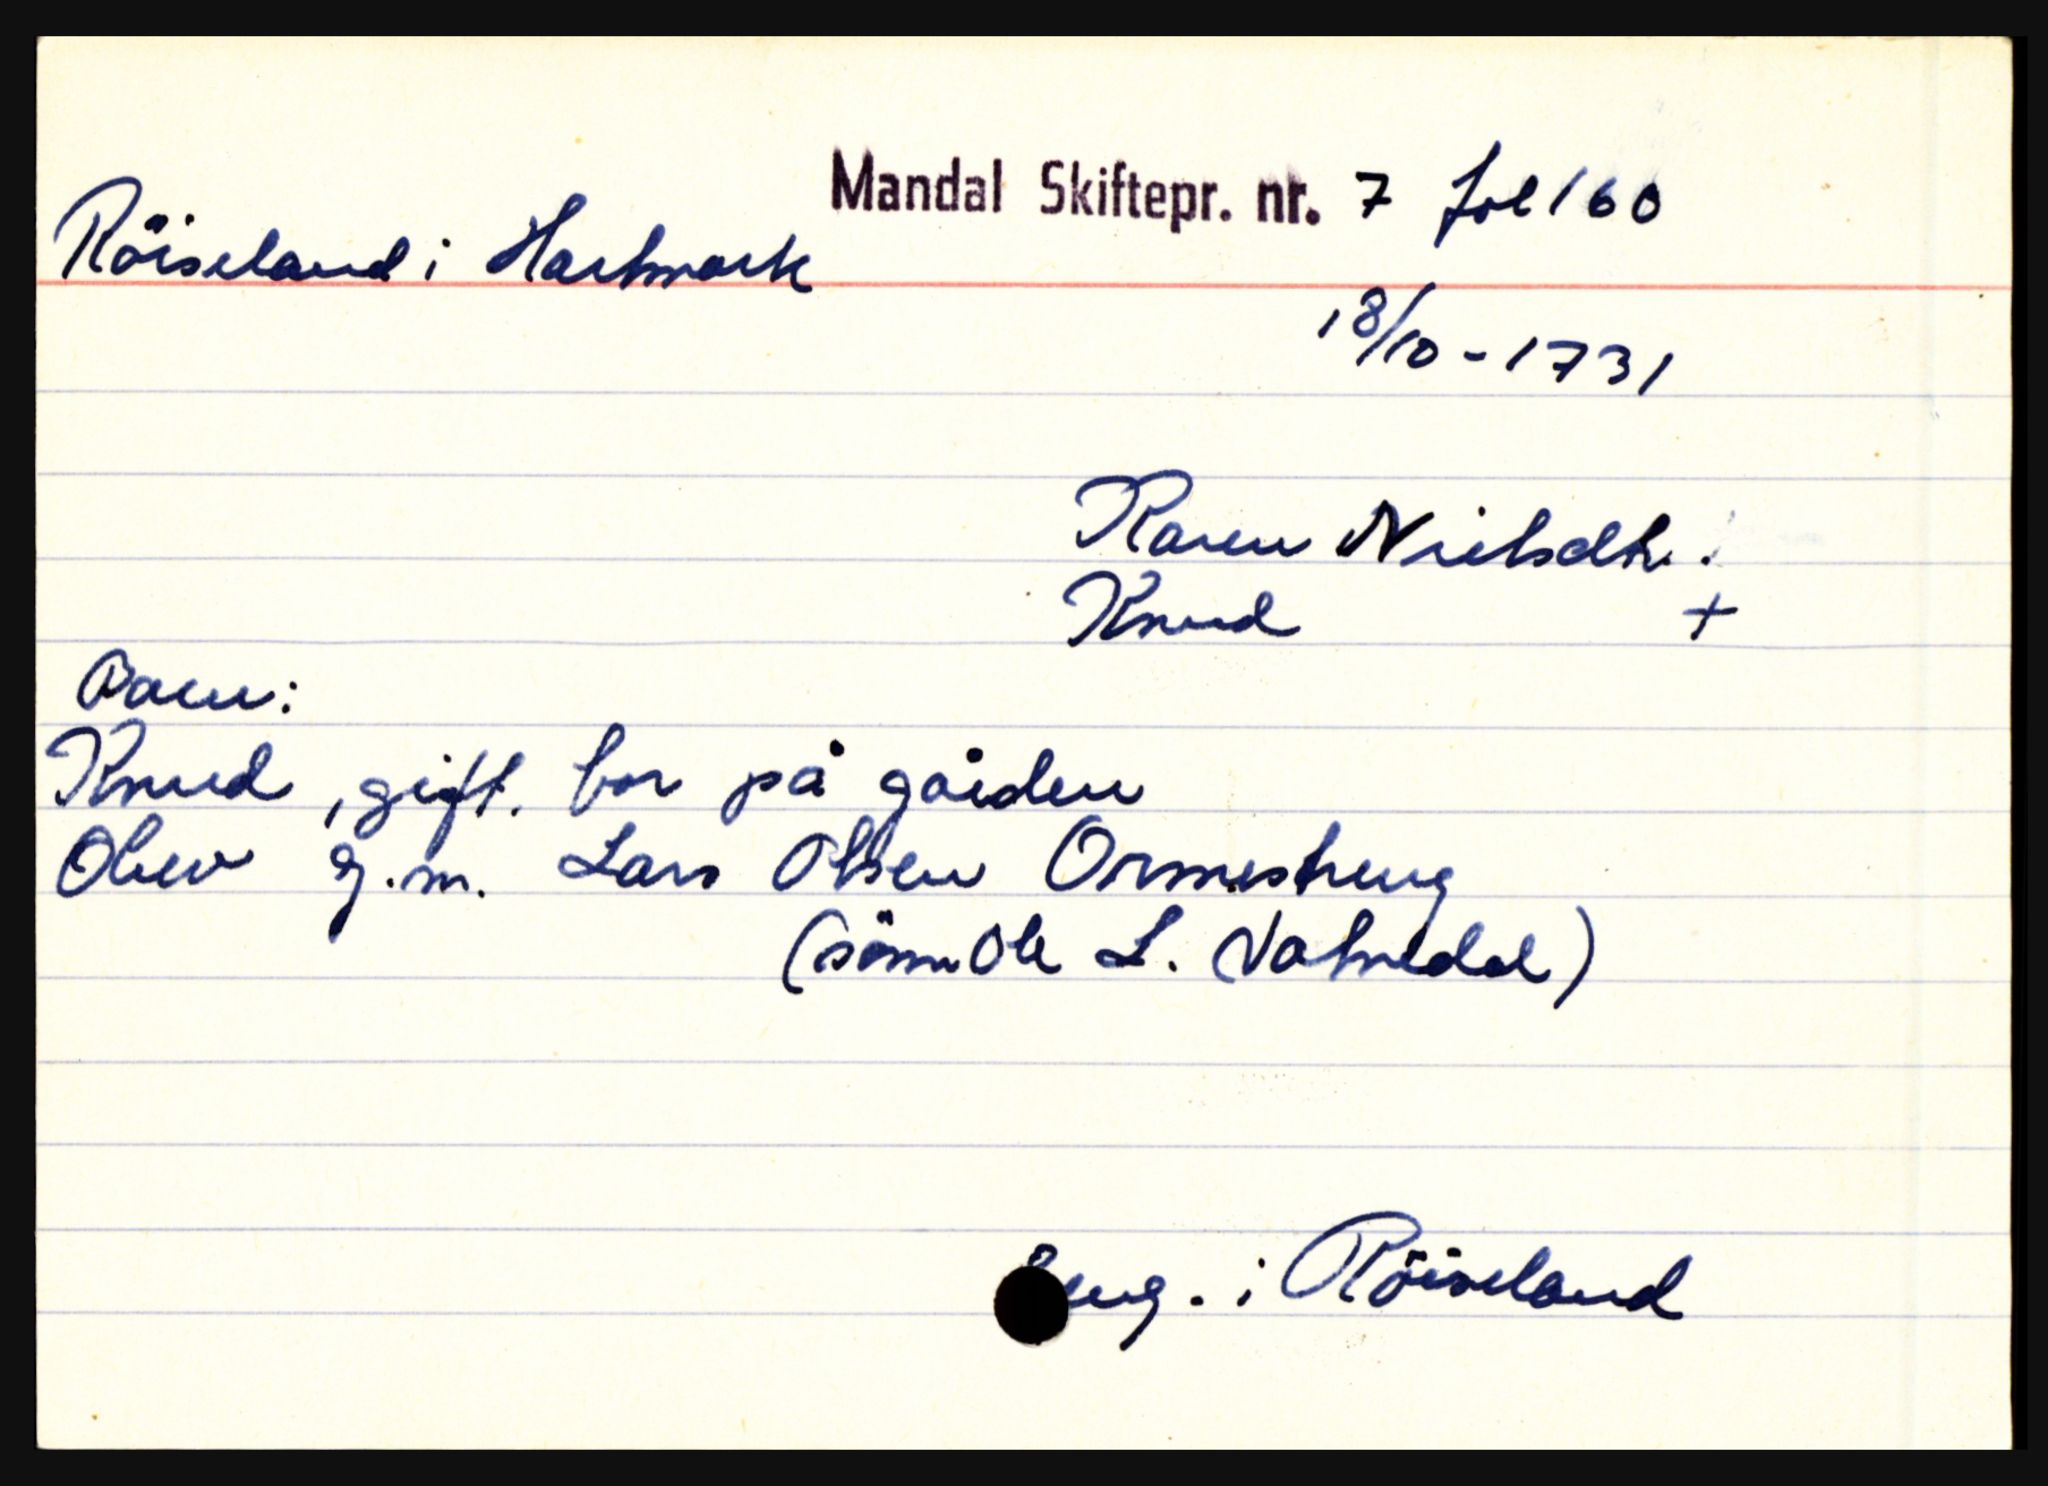 Mandal Skiftepr. nr. 7 fol 160
Röiseland i Hartmark
18/10 - 1731
Karen Nielsdtr.
Knud +
Barn:
Knud, gift. bor på gården
Olew g.m. Lars Olsen Ormestreng
(sönn Ole L. Vatnedal)
Eng. i Röiseland